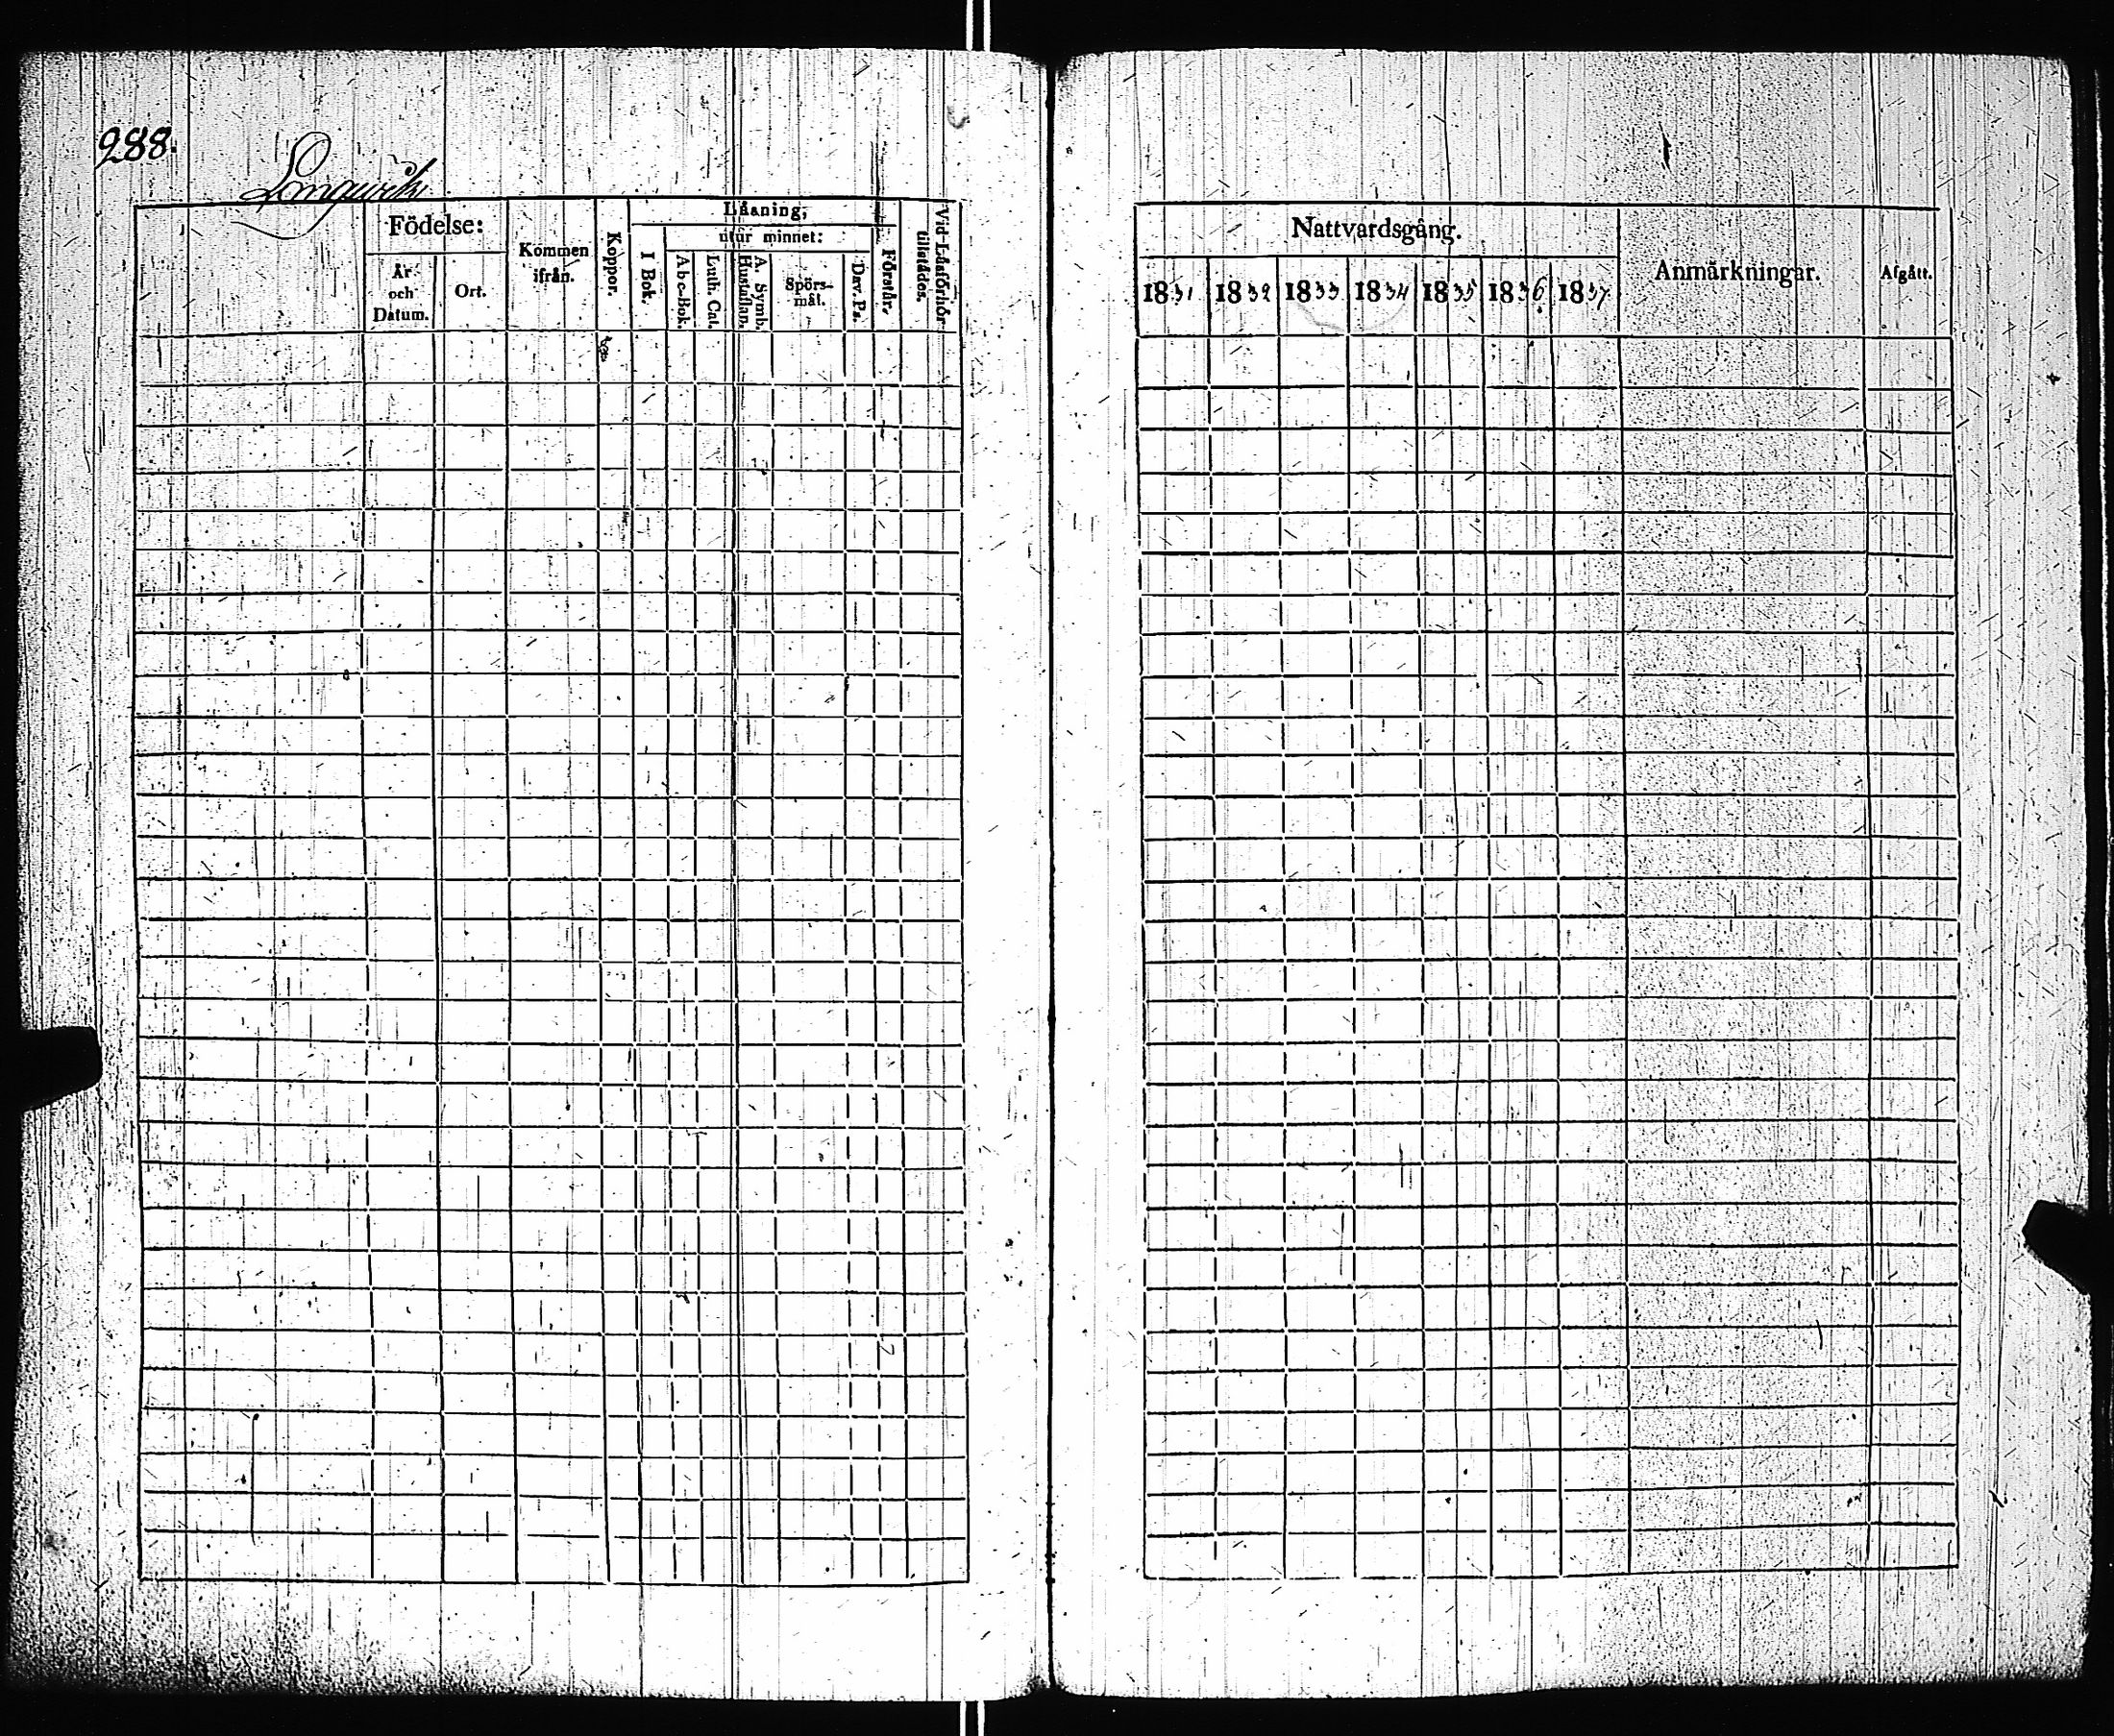 288.
Långwik
Födelse:
År och Datum.
Ort.
Kommen ifrån.
Koppor.
Läsning,
I Bok.
utur minnet:
Abc-Bok.
Luth. Cat.
A. Symb. Hustaflan.
Spörs-mål.
Dav. Ps.
Förstår.
Vid Läsförhör tillstädes.
Nattvardsgång.
1831
1832
1833
1834
1835
1836
1837
Anmärkningar.
Afgått.